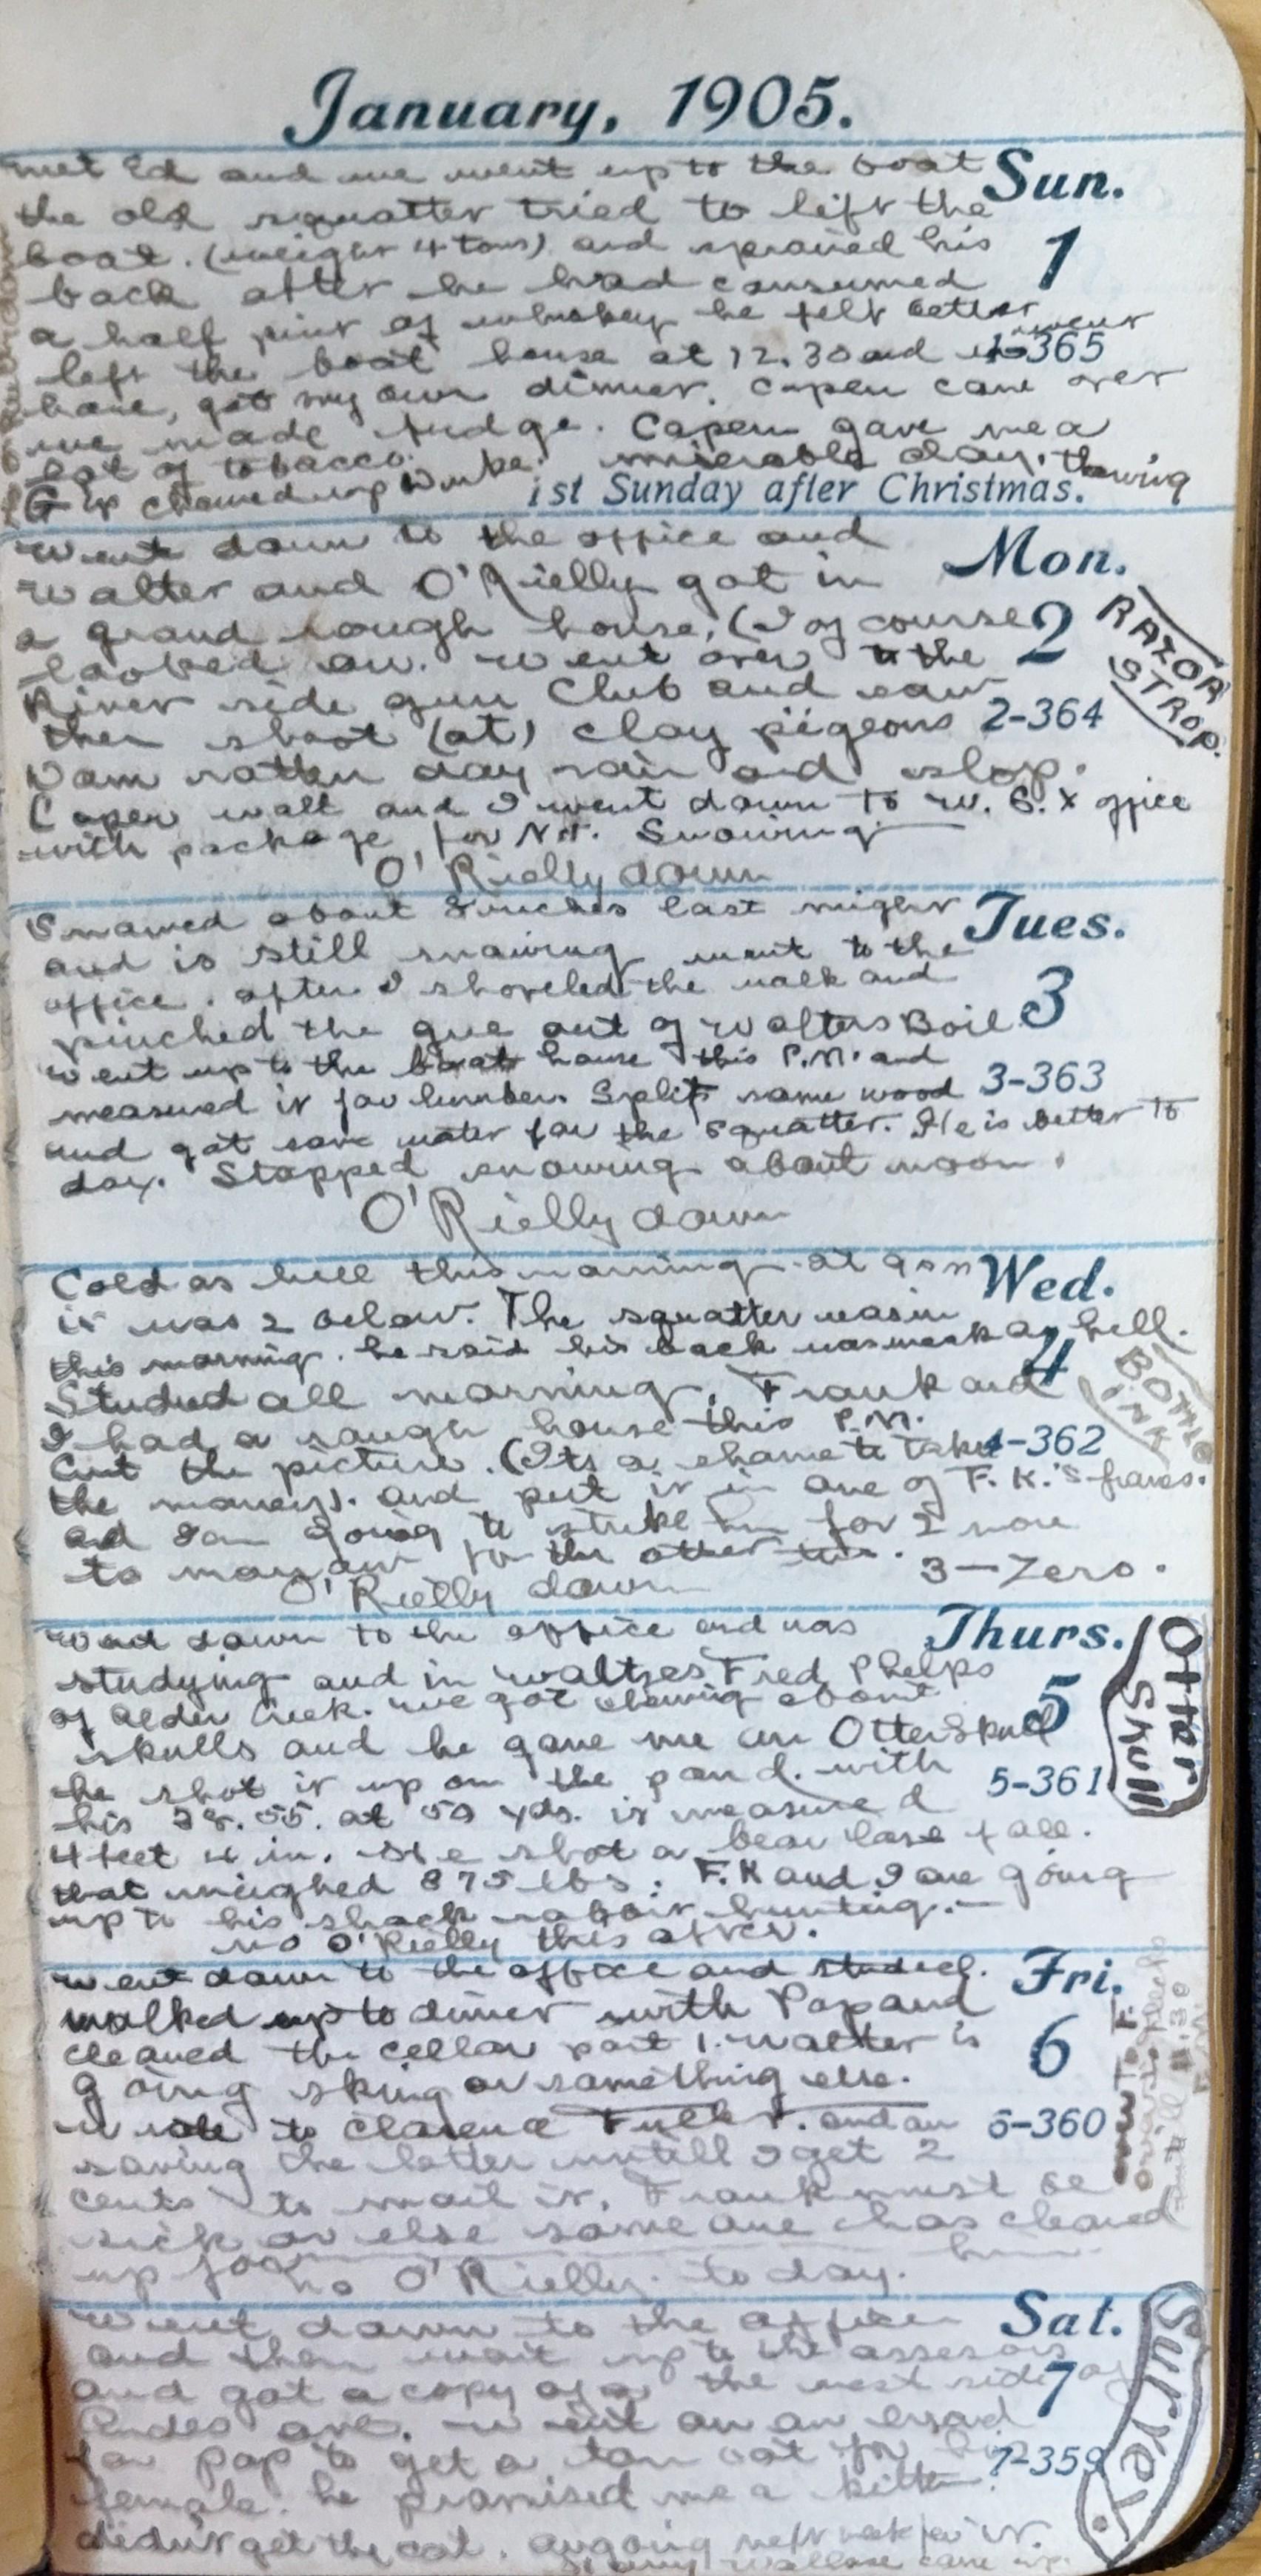 January, 1905.
Sun.
1
1-365
met Ed and we went up to the boat
the old squatter tried to lift the
boat. (weight 4 tons) and sprained his
back after he had consumed
a half pint of whiskey he felt better
left the boat house at 12.30 and went
home, got my own dinner. Capen came over
we made fudge. Capen gave me a
lot of tobacco.
miserable day. thawing
1st Sunday after Christmas.
Mon.
2
2-364
RAZOR
STROP.
Went down to the office and
Walter and O'Rielly got in
a grand rough house, (I of course
looked on. Went over to the
River side gun Club and saw
them shoot (at) clay pigeons
Dam rotten day rain and slop.
Capen walt and I went down to office
with package for N.Y. Snowing
O'Rielly down
Tues.
3
3-363
Snowed about 8 inches last night
and is still snowing went to the
office. after I shoveled the walk and
pinched the gue out of Walters Boil
Went up to the boat house this P.M. and
measured it for lumber. Split some wood
and got some water for the squatter. He is better to
day. Stopped snowing about noon.
O'Rielly down
Wed.
4
4-362
Cold as hell this morning at 9 am
it was 2 below. The squatter was in
this morning. he said his back was weak as hell.
Studied all morning. Frank and
I had a rough house this P.M.
Cut the picture. (Its a shame to take
the money). and put it in one of F. K.'s frames.
and I am going to strike him for 2 more
to morrow for the other two.
3-Zero.
O'Rielly down
Thurs.
5
5-361
Otter
Skull
down to the office and was
studying and in waltzes Fred Phelps
of Alder Creek. we got chewing about
skulls and he gave me an Otter Skull
he shot it up on the pond. with
his 38.55. at 50 yds. it measured
4 feet 4 in. He shot a bear last fall.
that weighed 375 lbs. F.K and I are going
up to his shack rabbit hunting.
no O'Rielly this after.
Fri.
6
6-360
Went down to the office and studied.
walked up to dinner with Pop and
cleaned the cellar part 1. Walter is
going sking or something else.
Wrote to Clarence and am
saving the letter untill I get 2
cents to mail it. Frank must be
sick or else some one has cleaned
him
up for
no O'Rielly to day.
Sat.
7
7-359
Survey.
Went down to the office
and then went up to the assesors
and got a copy of the west side of
ave. went on an errand
for pop to get a tom cat for
female. he promised me a kitten.
didn't get the cat. am going next week for it.